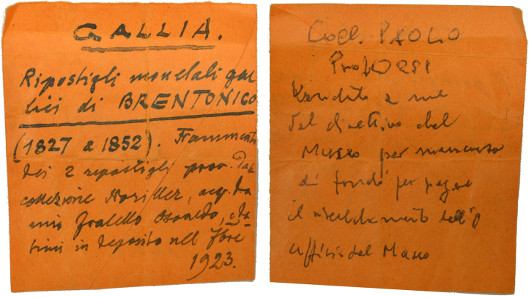 GALLIA.
Ripostigli monetali gal
lici di BRENTONICO
(1827 e 1852). Frammenti
dei 2 ripostigli prov. Da
collezione Rosiller, acq. da
mio fratello Osvaldo, da
timi in deposito nel 7bre
1923.
Coll. PAOLO
Prof ORSI
Venduto a me
dal direttivo del
Museo per mancanza
di fondi per pagare
il riscaldamento dell'
ufficio del Museo